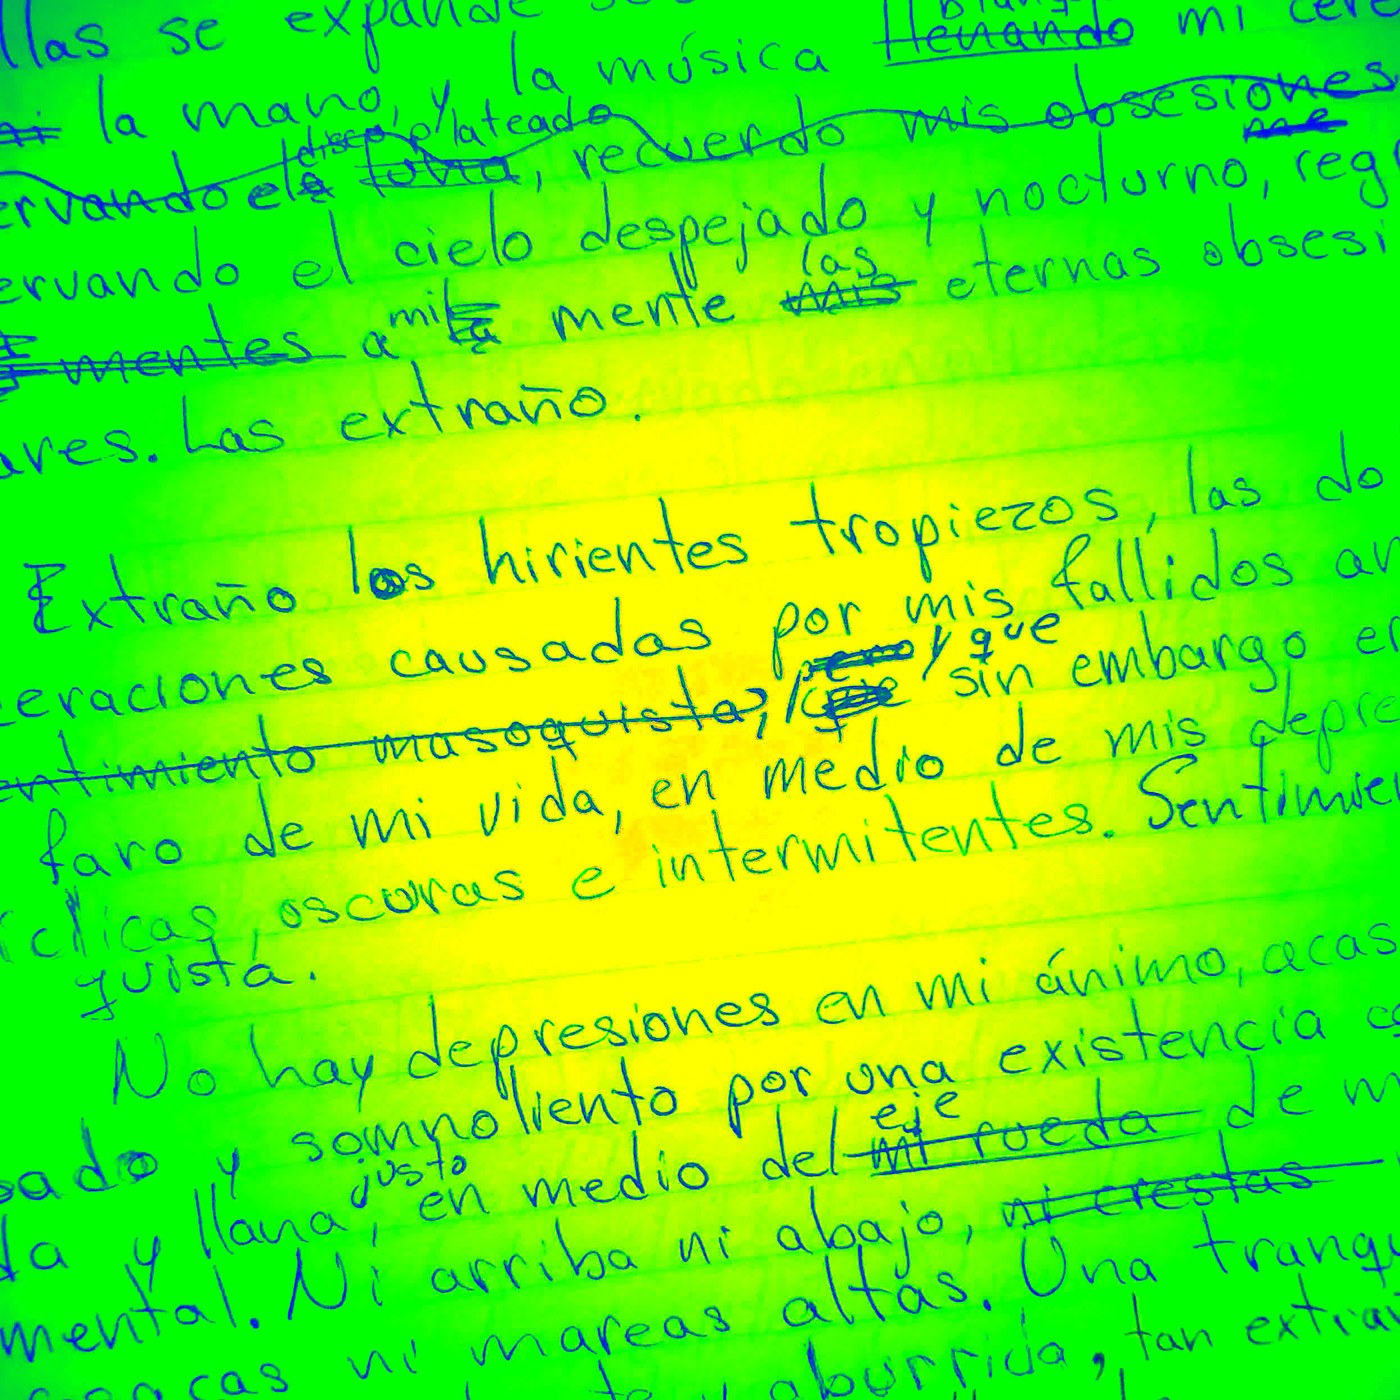 llas se expande
llenando mi cere
la mano, y la música
disco plateado
ervando el, recuerdo mis obsesiones
me
ervando el cielo despejado y nocturno, reg
las
mentes a mi mente mis eternas obsesi
ares. Las extraño.
Extraño los hirientes tropiezos, las do
eraciones causadas por mis fallidos
pero y que
entimiento masoquista, sin embargo
faro de mi vida, en medio de mis depre
clicas, oscuras e intermitentes. Sentimien
quista.
No hay depresiones en mi ánimo, acas
ado y somnoliento por una existencia
justo
eje
da y llana, en medio del mi rueda de m
mental. Ni arriba ni abajo, ni crestas
cas ni mareas altas. Una tranqu
y aburrida, tan extra